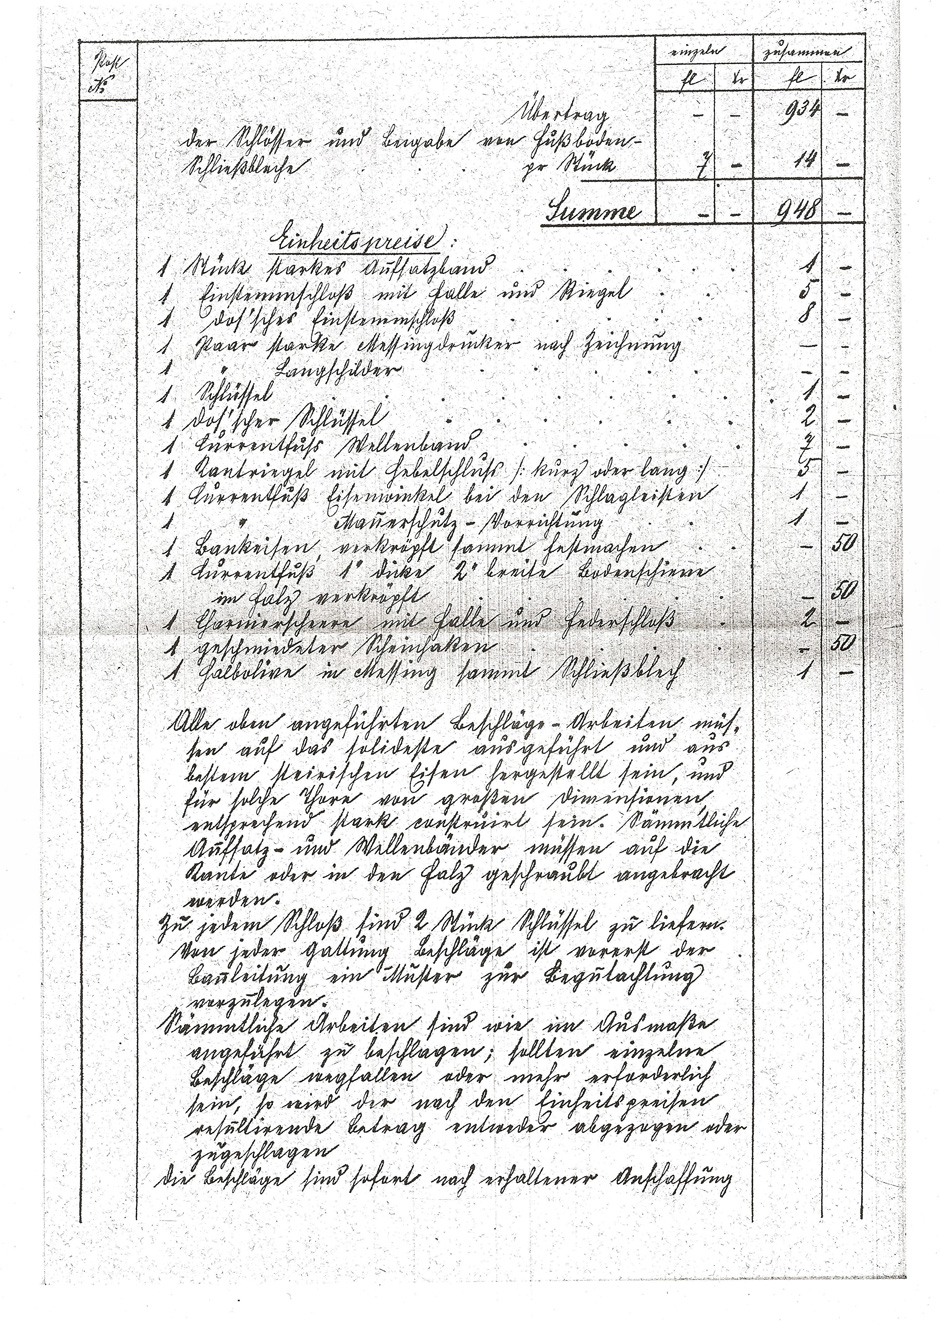 Post einzeln zusammen
No fl kr fl kr
Übertrag – – 934 –
der Schlösser und Beigabe von Fußboden-
Schließbleche . . . pr Stück 7 – 14 –
Summe – – 948 –
Einheitspreise:
1 Stück starkes Aufsatzband . . . . . . 1 –
1 Einstemmschloß mit Falle und Riegel . . 5 –
1 dos'sches Einstemmschloß . . . . . 8 –
1 Paar starke Messingdrucker nach Zeichnung – –
1 " Langschilder . . . . . – –
1 Schlüssel . . . . . . 1 –
1 dos'scher Schlüssel . . . . . 2 –
1 Currentfuß Wellenband . . . . . 7 –
1 Kantriegel mit Hebelschluß /: kurz oder lang :/ – 5 –
1 Currentfuß Eisenwinkel bei den Schlagleisten 1 –
1 " Mauerschutz-Vorrichtung . . 1 –
1 Bankeisen, verkröpft sammt Festmachen . . – 50
1 Currentfuß 1" dicke 2" breite Bodenschiene
im Falz verkröpft . . . . . . – 50
1 Charnierscheere mit Falle und Federschloß . 2 –
1 geschmiedeter Scheinhaken . . . . . – 50
1 Halbolive in Messing sammt Schließblech 1 –
Alle oben angeführten Beschläge-Arbeiten müs-
sen auf das solideste ausgeführt und aus
bestem steirischen Eisen hergestellt sein, und
für solche Thore von großen Dimensionen
entsprechend stark construirt sein. Sämmtliche
Aufsatz- und Wellenbänder müssen auf die
Kante oder in den Falz geschraubt angebracht
werden.
Zu jedem Schloß sind 2 Stück Schlüssel zu liefern.
Von jeder Gattung Beschläge ist vorerst der
Bauleitung ein Muster zur Begutachtung
vorzulegen.
Sämmtliche Arbeiten sind wie im Ausmaße
angeführt zu beschlagen; sollten einzelne
Beschläge wegfallen oder mehr erforderlich
sein, so wird der nach den Einheitspreisen
resultirende Betrag entweder abgezogen oder
zugeschlagen
Die Beschläge sind sofort nach erhaltener Anschaffung